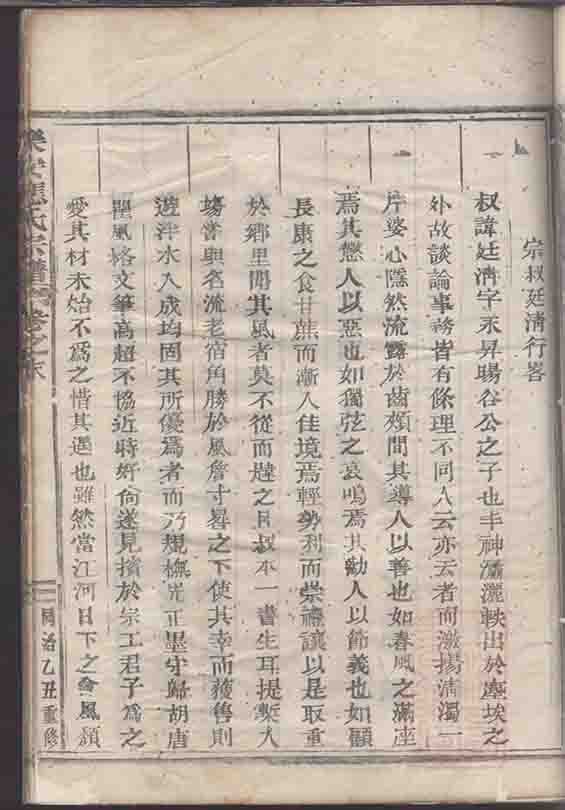 宗叔廷清行畧
叔諱廷清字永昇暘谷公之子也丰神瀟灑軼出於塵埃之
外故談論事務皆有條理不同人云亦云者而激揚清濁一
片婆心隱然流露於齒頰間其導人以善也如春風之滿座
焉其懲人以惡也如獨弦之哀鳴焉其勸人以節義也如顧
長康之食甘蔗而漸入佳境焉輕勢利而崇禮讓以是取重
於鄉里聞其風者莫不從而韙之曰叔本一書生耳提槧入
塲當與名流老宿角勝於風簷寸晷之下使其幸而獲售則
遊泮水入成均固其所優爲者而乃規橅先正墨守歸胡唐
瞿風格文筆高超不協近時好尙遂見擯於宗工君子爲之
愛其材未始不爲之惜其遇也雖然當江河日下之會風頹
樂安 氏宗譜 卷之末
同治乙丑重修